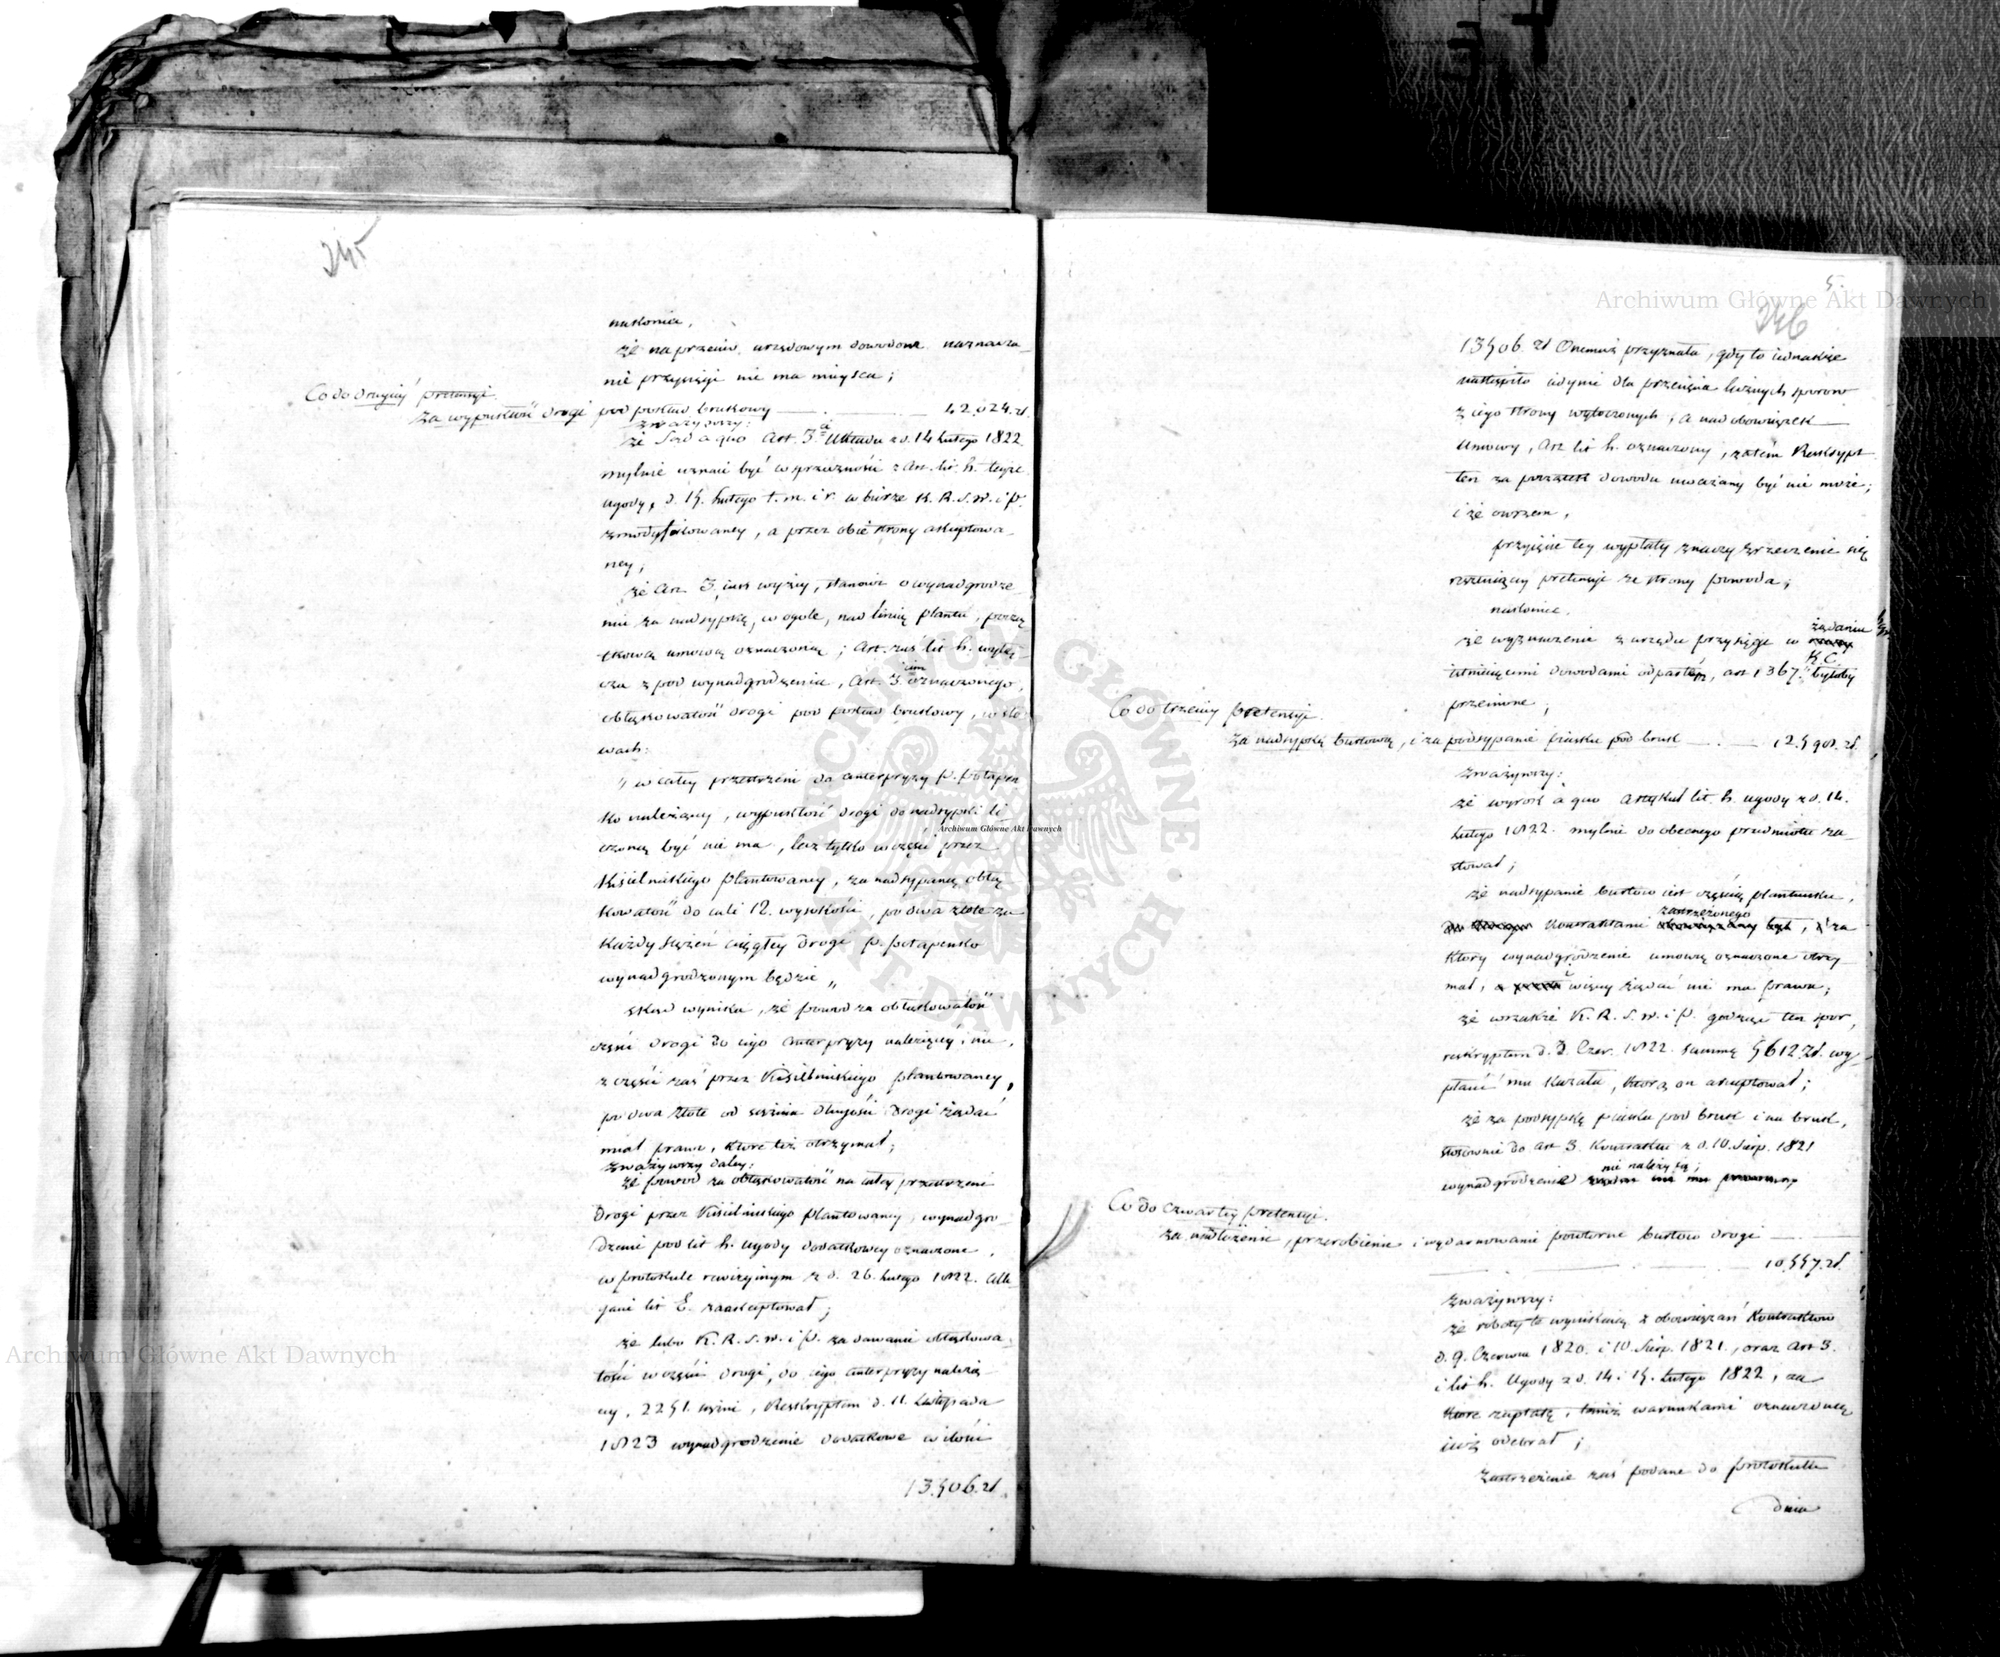 245
nakonie,
że na przeciw urzędowym dowodom naznacza-
nie przysięgi nie ma mieysca;
Co do drugiéy pretensyi.
za wypukłość drogi pod pokład brukowy — . — 42.024. zł.
zważywszy:
że Sąd a quo Art. 3. Układu z d. 14 Lutego 1822
mylnie uznał być w sprzeczności z Art. lit. h. teyże
ugody, d. 15. Lutego t. m. i r. w biórze K. R. S. W. i P.
zmodyfikowaney, a przez obie strony akceptowa-
ney;
że Art. 3. iak wyżey, stanowi o wynadgrodze
niu za nadsypkę, w ogóle, nad linią plantu, począ
tkową umową oznaczoną; Art. zaś lit h. wyłą-
cza z pod wynadgrodzenia, Art. 3cim oznaczonego,
obłąkowatość drogi pod pokład brukowy, w sło
wach:
„ w całey przestrzeni do anterpryzy P. Potapen
ko należącey, wypukłość drogi do nadsypki li
czoną być nie ma, lecz tylko w części przez
Kisielnickiego plantowaney, za nadsypaną obłą
kowatość do cali 12. wysokości, po dwa złote za
każdy sążeń ciągłey drogi P. Potapenko
wynadgrodzonym będzie „
skąd wynika, że powód za obłąkowatość
części drogi do iego anterpryzy należącéy, nie,
z części zaś przez Kisielnickiego plantowaney,
po dwa złote od sążnia długości drogi żądać
miał prawo, które też otrzymał;
zważywszy daley:
że powód za obłąkowatość na całey przestrzeni
drogi przez Kisielnickiego plantowaney, wynadgro-
dzenie pod lit h. ugody dodatkowey oznaczone,
w protokule rewizyinym z d. 26. Lutego 1822. alle-
gacie lit E. zaakceptował;
że lubo K. R. S. W. i P. za dawanie obłąkowa-
tości w części drogi, do iego anterpryzy należą-
cey, 2251. sążni, Reskryptem d. 11. Listopada
1823 wynadgrodzenie dodatkowe w ilości
13.506. zł.
5.
246
13506. zł Onemuż przyznała, gdy to iednakże
nastąpiło iedynie dla przecięcia licznych sporów
z iego strony wytoczonych, a nad obowiązek
Umowy, Art. lit h. oznaczony, zatém Reskrypt
ten za początek dowodu uważany być nie może;
i że owszem,
przyięcie tey wypłaty znaczy zrzeczenie się
roszczącey pretensyi ze strony powoda;
nakonie,
że wyznaczenie z urzędu przysięgi w żądaniu
istnieiącemi dowodami odpartem, art 1367. K. C. byłoby
przeciwne;
Co do trzeciey pretensyi.
za nadsypkę burtową, i za podsypanie piasku pod bruk — . — 12.590. zł.
zważywszy:
że wyrok à quo Artykuł lit. h. ugody z d. 14.
Lutego 1822. mylnie do obecnego przedmiotu za-
stował;
że nadsypanie burtów iest częścią plantunku,
kontraktami zastrzeżonego, i za
który wynadgrodzenie umową oznaczone otrzy-
mał, więcey żądać nie ma prawa;
że wszakże K. R. S. W. i P. godząc ten spor,
reskryptem d. 2. Czer. 1822. summę 5612. zł. wy-
płacić mu kazała, którą on akceptował;
że za podsypkę piasku pod bruk i na bruk,
stosownie do art 3. Kontraktu z d. 10. Sierp. 1821
wynadgrodzenie nie należy się;
Co do czwartey pretensyi.
za umłożenie, przerobienie i wydarnowanie powtórne burtów drogi — . —
10.557. zł.
zważywszy:
że roboty te wynikaią z obowiązań Kontraktów
d. 9. Czerwca 1820. i 10. Sierp. 1821., oraz Art 3.
i lit h. Ugody z d. 14 i 15. Lutego 1822, za
które zapłatę, temiż warunkami oznaczoną
iuż odebrał;
Zastrzeżenie zaś podane do protokułu
dnia
Archiwum Główne Akt Dawnych
Archiwum Główne Akt Dawnych
Archiwum Główne Akt Dawnych
ARCHIWUM GŁÓWNE AKT DAWNYCH